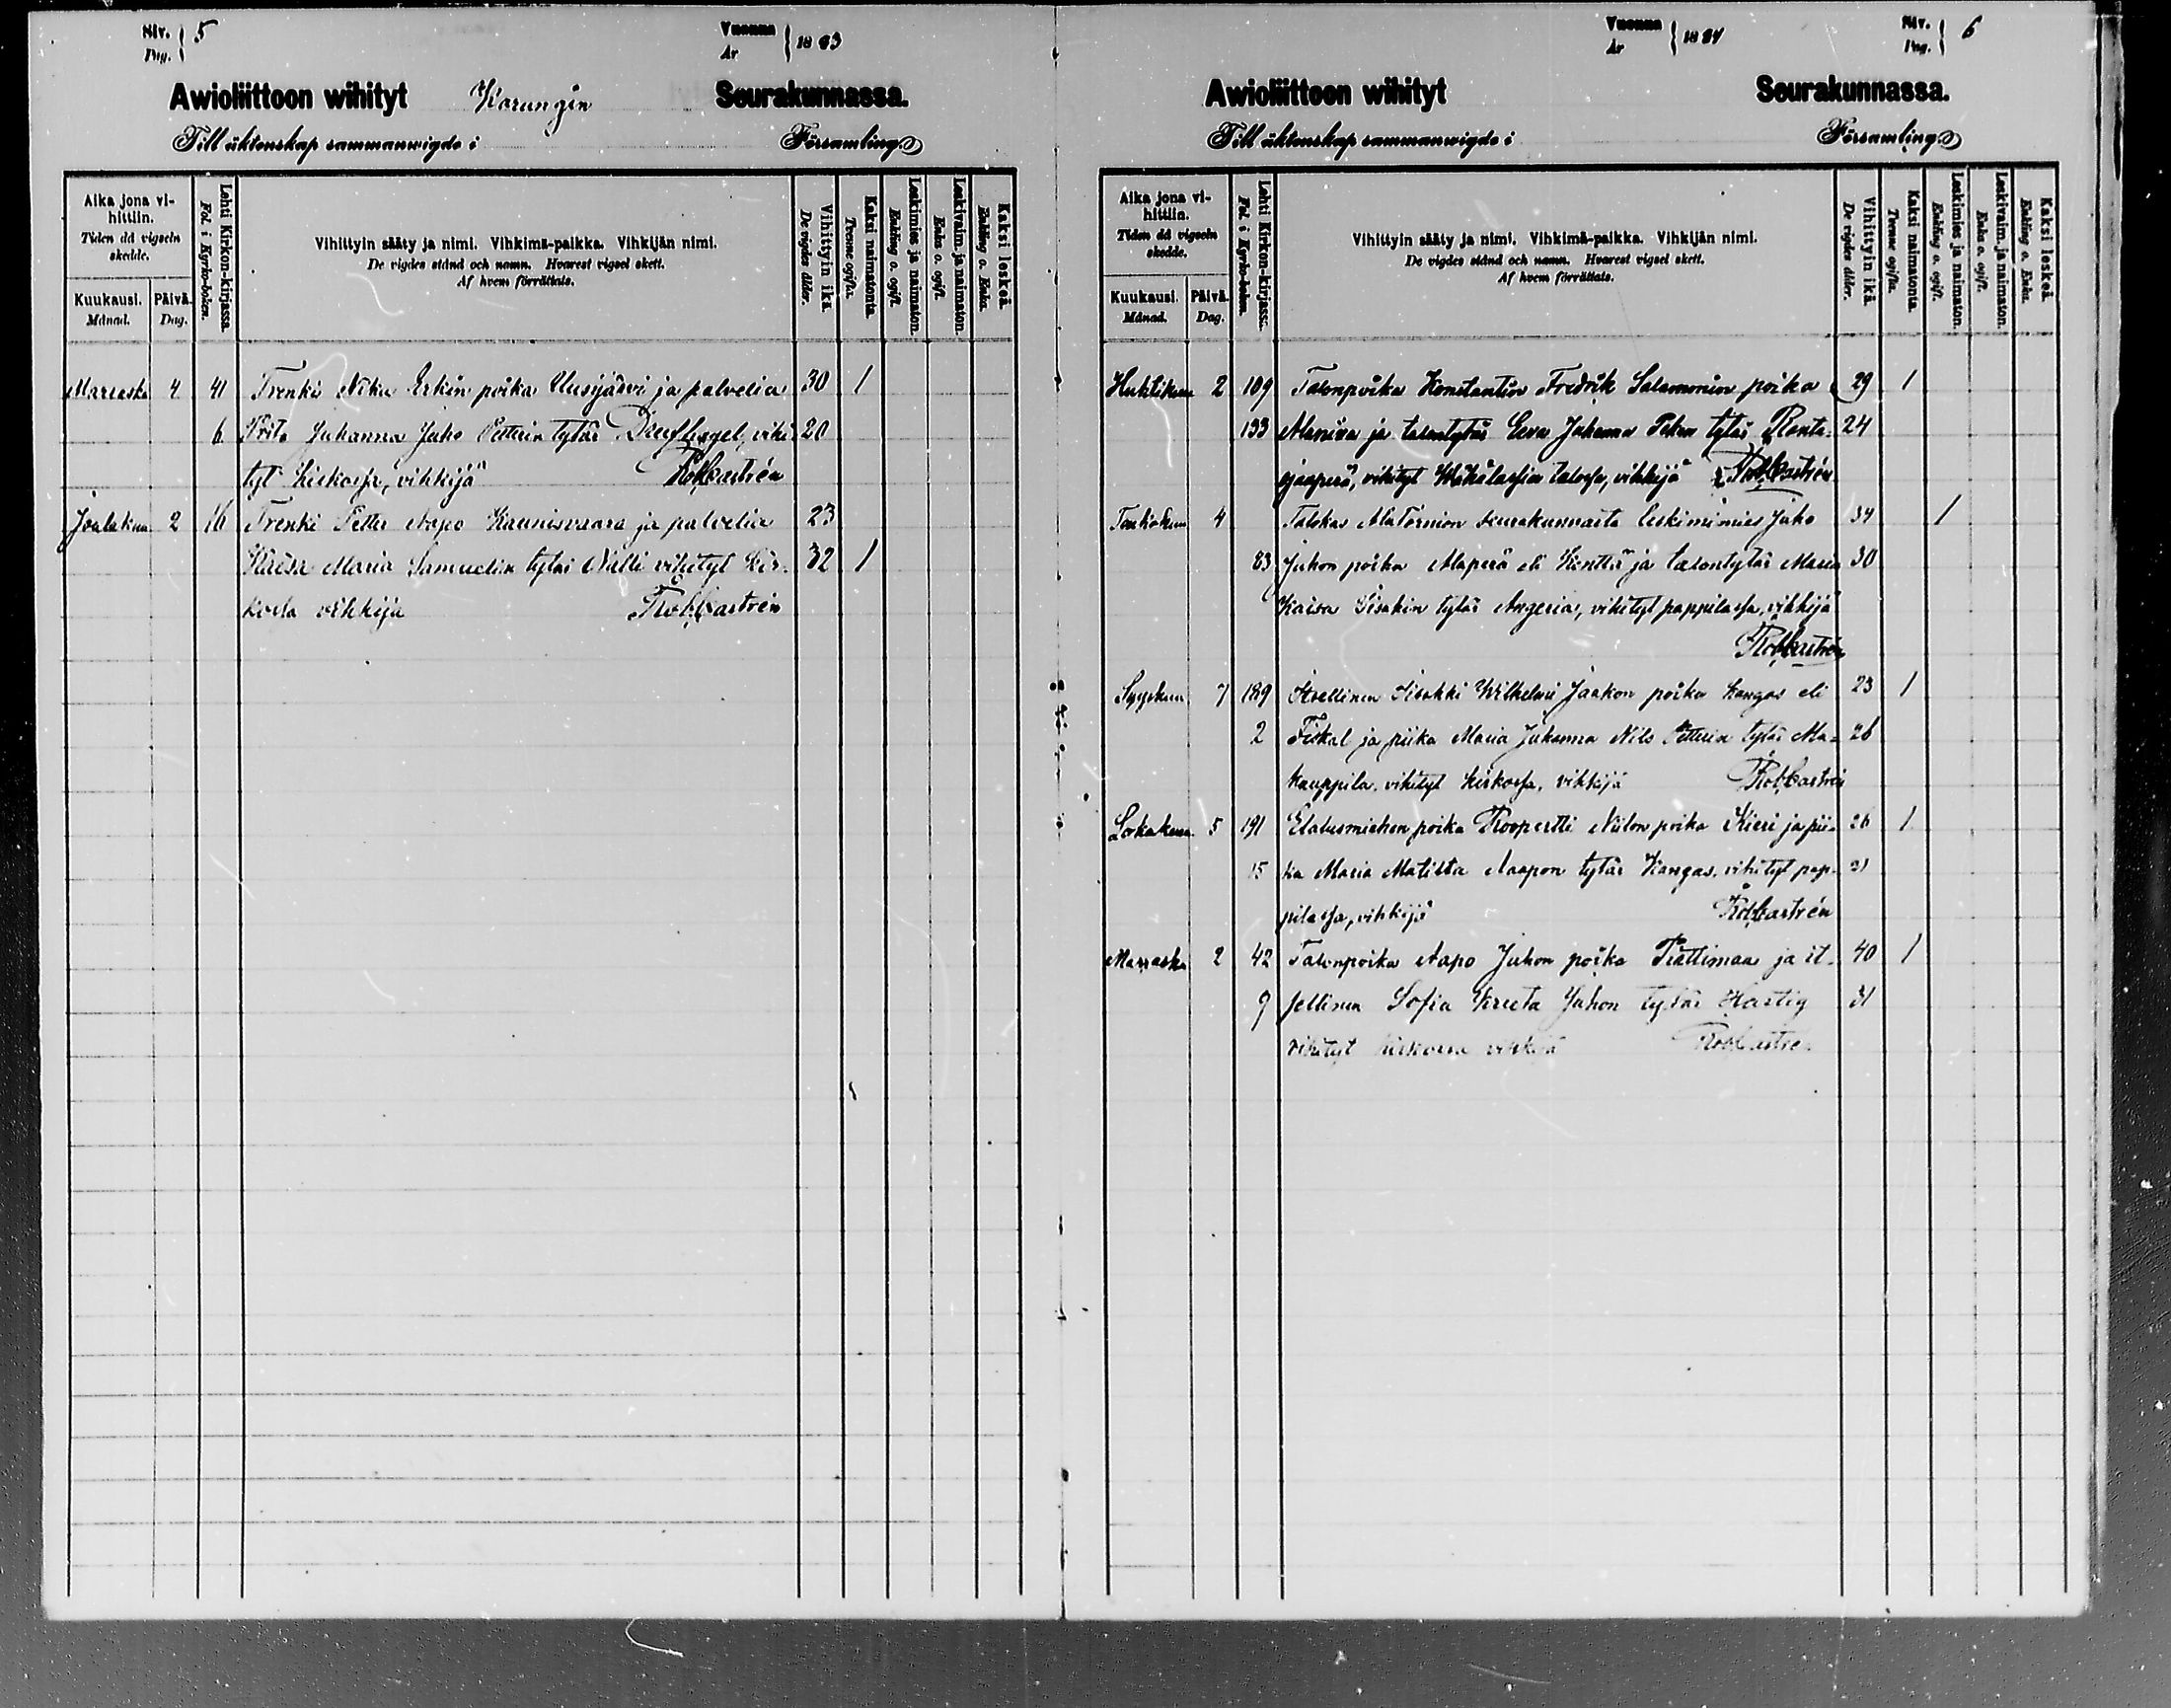 Siv. Pag. 5
Vuonna År 1883
Awioliittoon wihityt Karungin Seurakunnassa.
Till äktenskap sammanwigde i Församling
Aika jona vihittiin.
Tiden då vigseln skedde.
Kuukausi. Månad.
Päivä. Dag.
Lehti Kirkon-kirjassa. Fol. i Kyrko-boken.
Vihittyin sääty ja nimi. Vihkimä-paikka. Vihkijän nimi.
De vigdes stånd och namn. Hvarest vigsel skett.
Af hvem förrättats.
Vihittyin ikä. De vigdes ålder.
Kaksi naimatonta. Tvenne ogifta.
Leskimies ja naimaton. Enkling o. ogift.
Leskivaim. ja naimaton. Enka o. ogift.
Kaksi leskeä. Enkling o. Enka.
Marrask. 4 41 Trenki Niku Erkin poika Uusijärvi ja palvelia 30 1
6 Prita Juhanna Juho Petterin tytär vihi- 20
tyt kirkossa, vihkijä Rob Castrén
Joulukuu 2 16 Trenki Petter Aapo Kaunisvaara ja palvelia 23
Kaisa Maria Samuelin tytär Niilli vihityt kir- 32 1
kossa vihkijä Rob Castrén
Vuonna År 1884
Siv. Pag. 6
Awioliittoon wihityt Seurakunnassa.
Till äktenskap sammanwigde i Församling
Aika jona vihittiin.
Tiden då vigseln skedde.
Kuukausi. Månad.
Päivä. Dag.
Lehti Kirkon-kirjassa. Fol. i Kyrko-boken.
Vihittyin sääty ja nimi. Vihkimä-paikka. Vihkijän nimi.
De vigdes stånd och namn. Hvarest vigsel skett.
Af hvem förrättats.
Vihittyin ikä. De vigdes ålder.
Kaksi naimatonta. Tvenne ogifta.
Leskimies ja naimaton. Enkling o. ogift.
Leskivaim. ja naimaton. Enka o. ogift.
Kaksi leskeä. Enkling o. Enka.
Huhtikuu 2 109 Talonpoika Konstantin Fredrik Salomonin poika 29 1
133 ja talontytär Eeva Juhanna Pekan tytär Rento- 24
ojanperä, vihityt talossa, vihkijä Rob Castrén
Toukokuu 4 Talokas AlaTornion seurakunnasta leskimies Juho 34 1
83 Juhon poika Alaperä eli Kenttä ja talontytär Maria 30
Kaisa Iisakin tytär Angeria, vihityt pappilassa, vihkijä
Rob Castrén
Syyskuu 7 189 Itsellinen Iisakki Wilhelmi Jaakon poika Kangas eli 23 1
2 Fiskal ja piika Maria Juhanna Nils Petterin tytär Ala- 26
kauppila. vihityt kirkossa, vihkijä Rob Castrén
Lokakuu 5 191 Elatusmiehen poika Roopertti Niilon poika Kieri ja pii- 26 1
15 ka Maria Matilta Aapon tytär Kangas, vihityt pap- 21
pilassa, vihkijä Rob Castrén
Marrask. 2 42 Talonpoika Aapo Juhon poika Piattimaa ja it- 40 1
9 sellinen Sofia Kreeta Juhon tytär Hartig 31
vihityt kirkossa vihkijä Rob Castrén